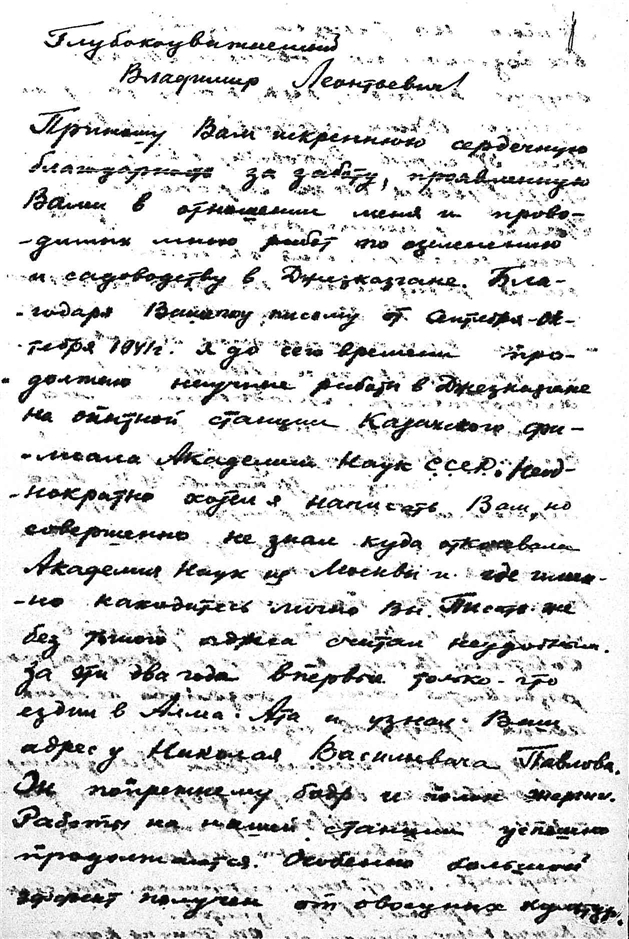 Глубокоуважаемый
Владимир Леонтьевич!
Приношу Вам искреннюю сердечную
благодарность за заботу, проявленную
Вами в отношении меня и прово-
-димых мною работ по озеленению
и садоводству в Джезказгане. Бла-
-годаря Вашему письму от Сентября-Ок-
тября 1941г. я до сего времени про-
должаю научные работы в Джезказгане
на опытной станции Казахского фи-
-лиала Академии Наук СССР. Неод-
-нократно хотел я написать Вам, но
совершенно не знал куда
Академия Наук из Москвы и где имен-
-но находитесь лично Вы. Писать же
без точного адреса считал неудобным.
За эти два года впервые только-что
ездил в Алма-Ата и узнал Ваш
адрес у Николая Васильевича Павлова.
Он попрежнему бодр и полон энергии.
Работы на нашей станции успешно
продолжаются. Особенно большой
эффект получен от овощных культур.